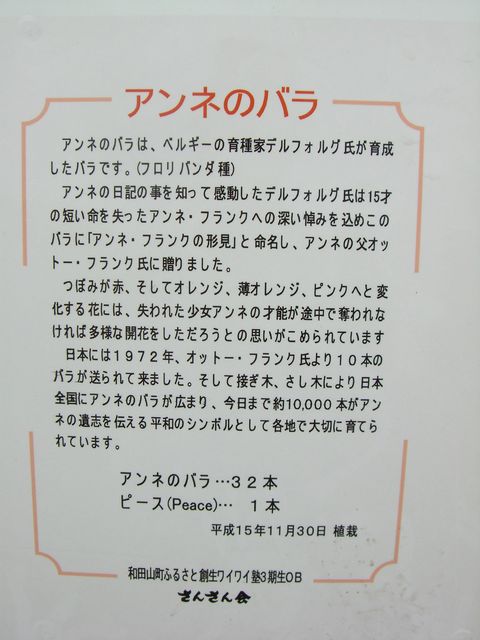 アンネのバラ
アンネのバラは、ベルギーの育種家デルフォルグ氏が育成
したバラです。(フロリバンダ種)
アンネの日記の事を知って感動したデルフォルグ氏は15才
の短い命を失ったアンネ・フランクへの深い悼みを込めこの
バラに「アンネ・フランクの形見」と命名し、アンネの父オッ
トー・フランク氏に贈りました。
つぼみが赤、そしてオレンジ、薄オレンジ、ピンクへと変
化する花には、失われた少女アンネの才能が途中で奪われな
ければ多様な開花をしただろうとの思いがこめられています
日本には1972年、オットー・フランク氏より10本の
バラが送られて来ました。そして接ぎ木、さし木により日本
全国にアンネのバラが広まり、今日まで約10,000本がアン
ネの遺志を伝える平和のシンボルとして各地で大切に育てら
れています。
アンネのバラ…32本
ピース(Peace)… 1本
平成15年11月30日 植栽
和田山町ふるさと創生ワイワイ塾3期生OB
さんさん会